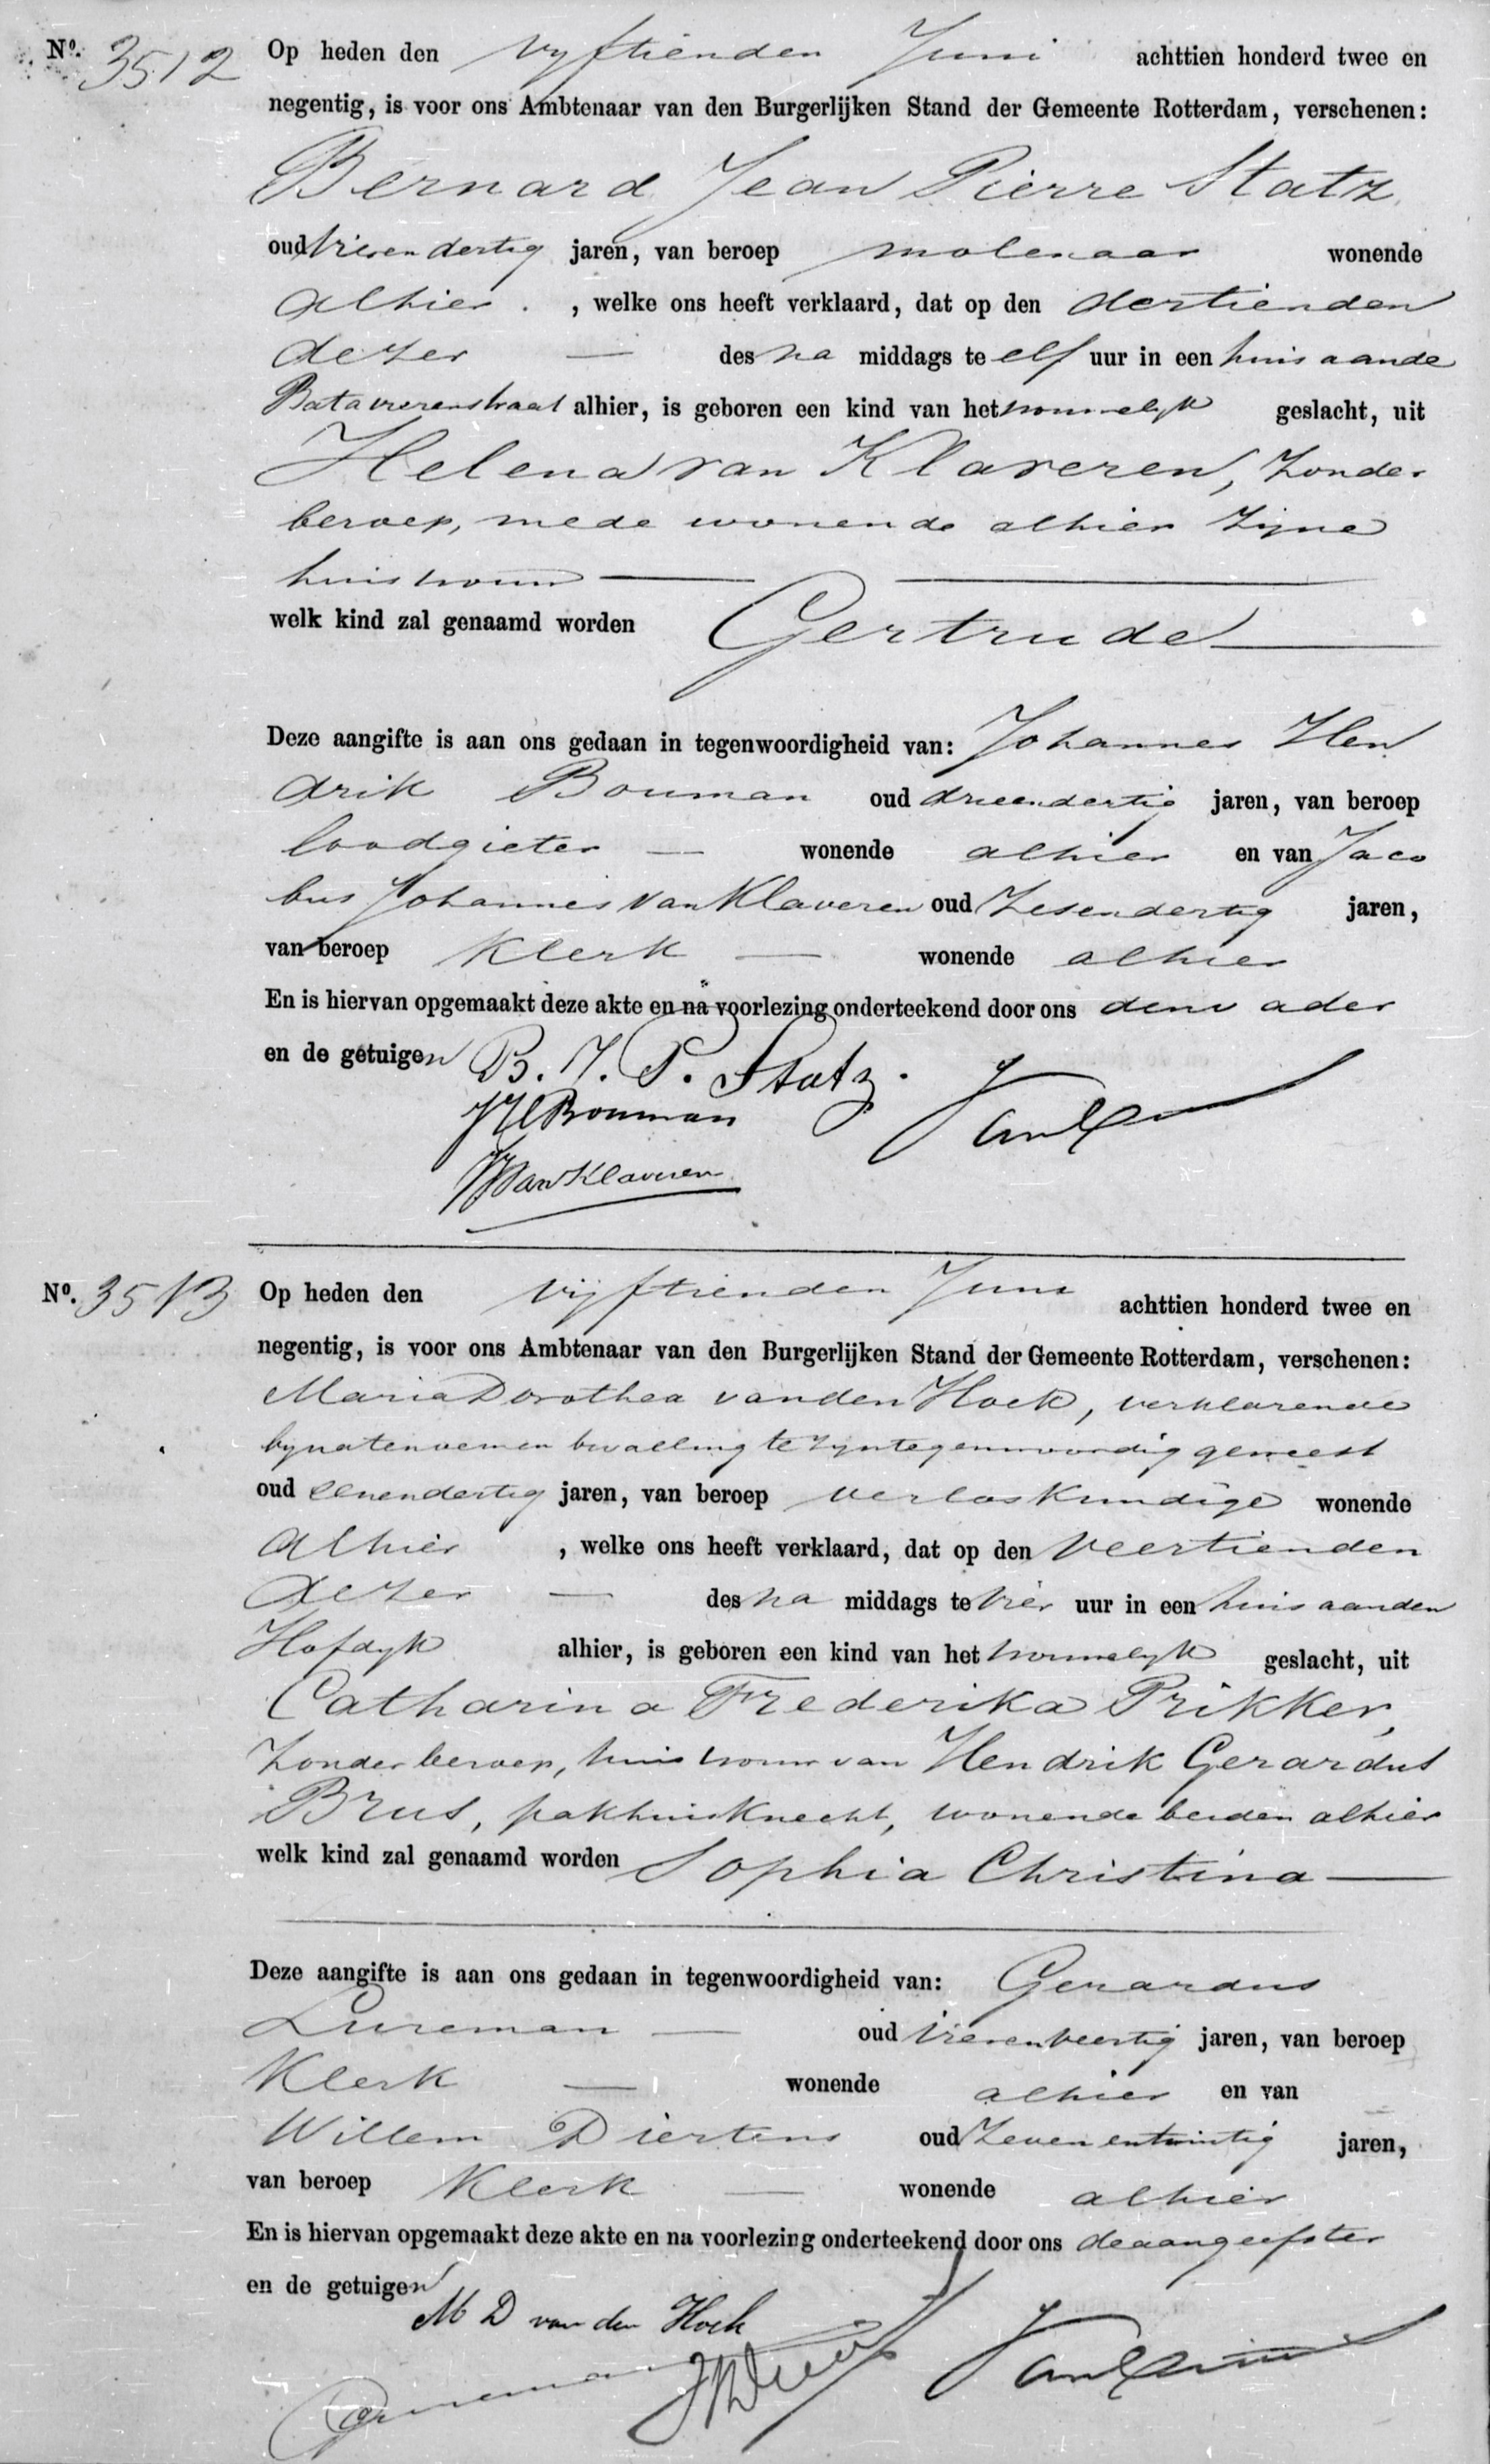 No. 3512 Op heden den vyftienden Juni achttien honderd twee en
negentig, is voor ons Ambtenaar van den Burgerlijken Stand der Gemeente Rotterdam, verschenen:
Bernard Jean Pierre Statz
oud vierendertig jaren, van beroep molenaar wonende
alhier , welke ons heeft verklaard, dat op den dertienden
dezer — des na middags te elf uur in een huis aan de
Batavierenstraat alhier, is geboren een kind van het vrouwelyk geslacht, uit
Helena van Klaveren, zonder
beroep, mede wonende alhier zyne
huisvrouw —
welk kind zal genaamd worden Gertrude —
Deze aangifte is aan ons gedaan in tegenwoordigheid van: Johannes Hen
drik Bouman oud drieendertig jaren, van beroep
loodgieter — wonende alhier en van Jaco
bus Johannes van Klaveren oud zesendertig jaren,
van beroep klerk — wonende alhier
En is hiervan opgemaakt deze akte en na voorlezing onderteekend door ons den vader
en de getuigen B. J. P. Statz.
JHBouman
JJvanKlaveren
No. 3513 Op heden den vijftienden Juni achttien honderd twee en
negentig, is voor ons Ambtenaar van den Burgerlijken Stand der Gemeente Rotterdam, verschenen:
Maria Dorothea van den Hoek, verklarende
by na te noemen bevalling te zyn tegenwoordig geweest
oud eenendertig jaren, van beroep verloskundige wonende
alhier , welke ons heeft verklaard, dat op den veertienden
dezer — des na middags te vier uur in een huis aan den
Hofdyk alhier, is geboren een kind van het vrouwelyk geslacht, uit
Catharina Frederika Prikker,
zonder beroep, huisvrouw van Hendrik Gerardus
Brus, pakhuisknecht, wonende beiden alhier
welk kind zal genaamd worden Sophia Christina —
Deze aangifte is aan ons gedaan in tegenwoordigheid van: Gerardus
Lureman — oud vierenveertig jaren, van beroep
klerk — wonende alhier en van
Willem Diertens oud zevenentwintig jaren,
van beroep klerk — wonende alhier
En is hiervan opgemaakt deze akte en na voorlezing onderteekend door ons de aangeefster
en de getuigen
M D van den Hoek